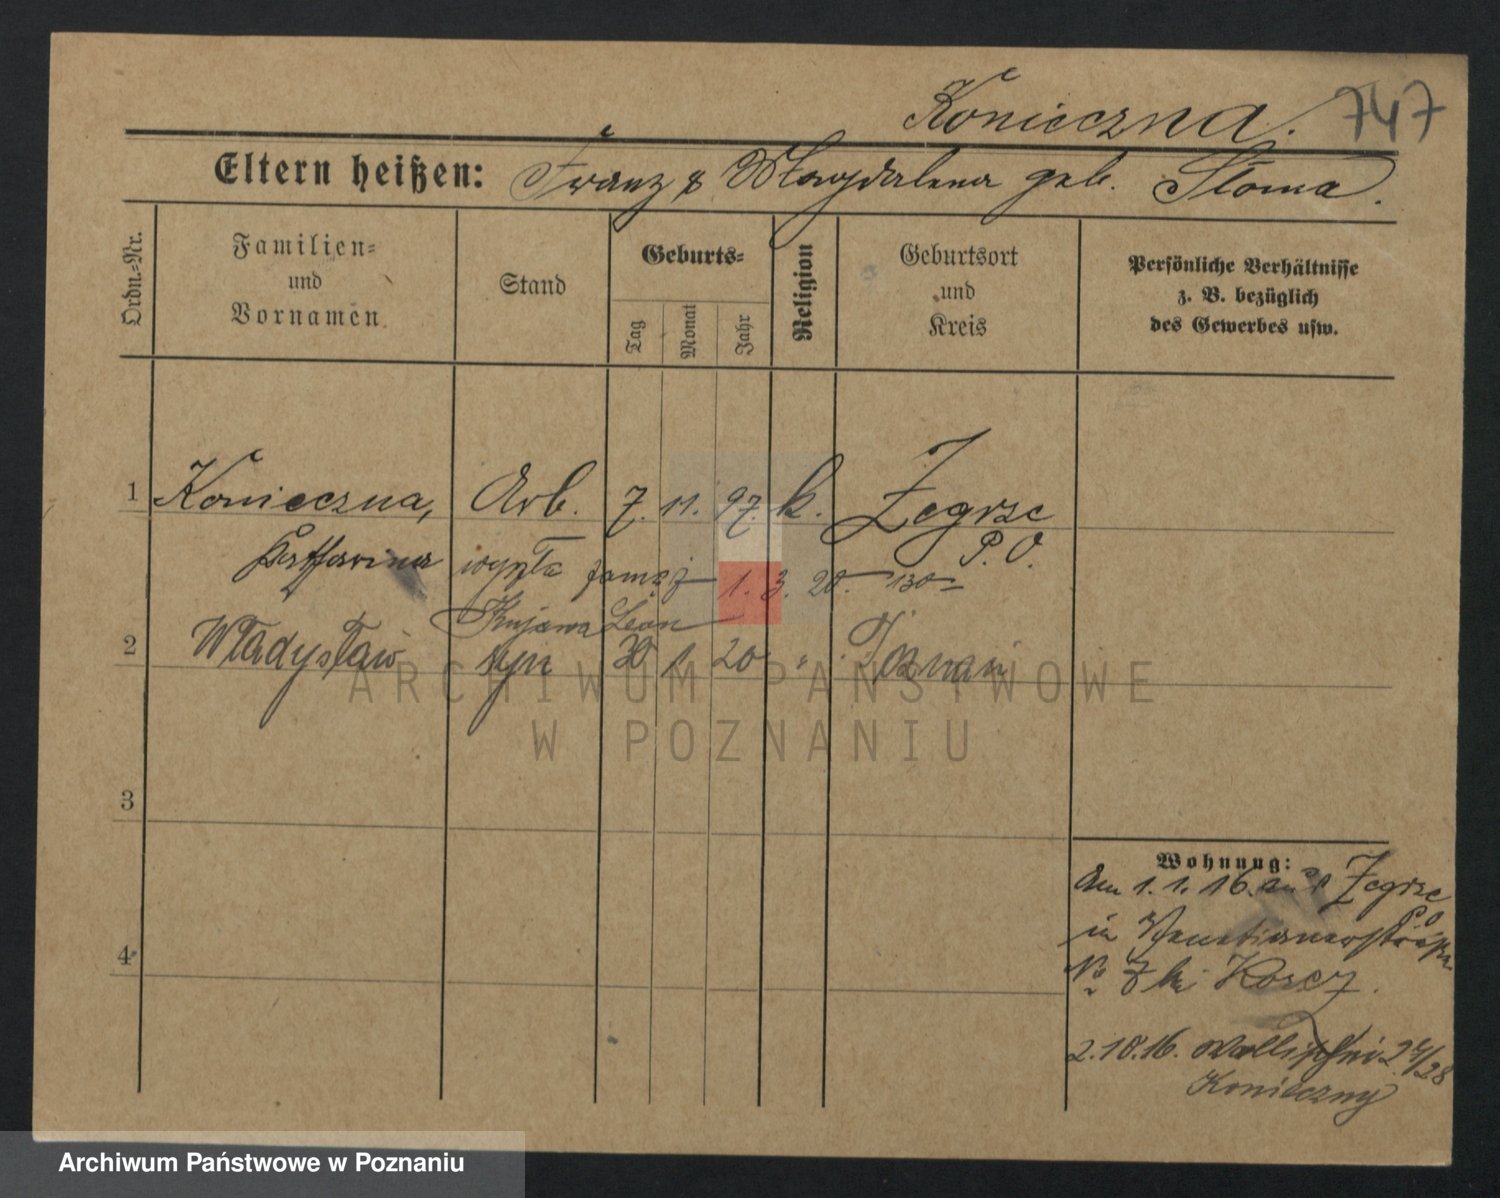 Konieczna. 747
Eltern heißen: Franz & Magdalena geb. Słoma.
Ordn.=Nr.
Familien=
und
Vornamen
Stand
Geburts=
Tag
Monat
Jahr
Religion
Geburtsort
und
Kreis
Persönliche Verhältnisse
z. B. bezüglich
des Gewerbes usw.
1 Konieczna, Arb. 7. 11. 97. k. Zegrze
P. O.
Katharina wyszła zamąż 1. 3. 20. 130
Kujawa Leon
2 Władysław syn 30 1 20 " Poznań
ARCHIWUM PAŃSTWOWE
W POZNANIU
3
4
Wohnung:
Am 1. 1. 16. aus Zegrze
P. O
in Venetianerstraße
No 7 bei Korcz.
2.10.16. Wallischei 27/28
Konieczny
Archiwum Państwowe w Poznaniu